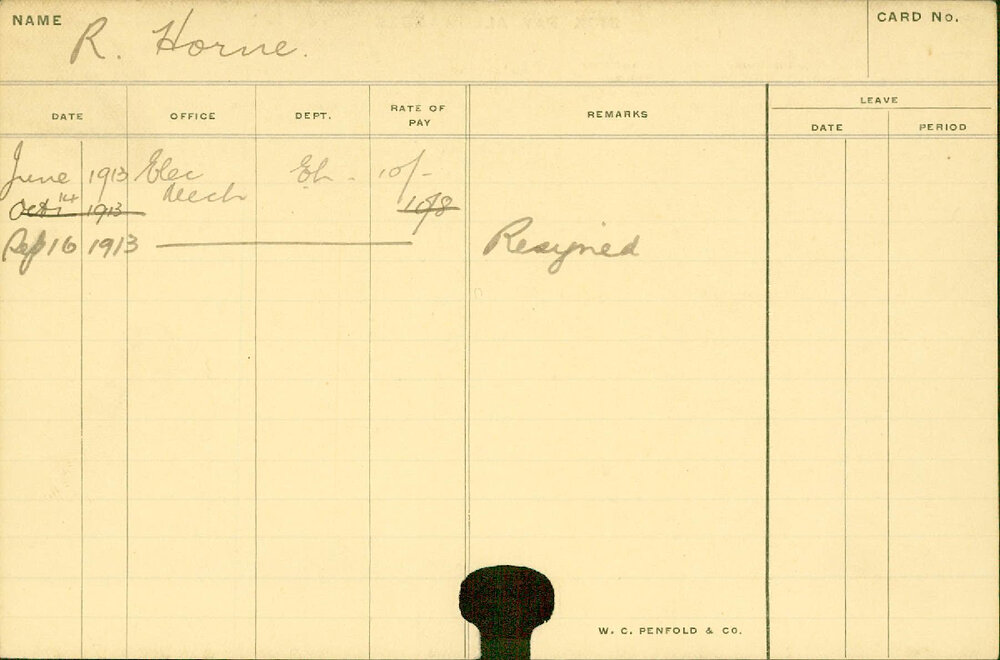 NAME R. Horne. CARD No.
DATE OFFICE DEPT. RATE OF PAY REMARKS LEAVE
DATE PERIOD
June 1913 Elec Mech El. 10/-
Oct 14 1913 10/8
Sep 16 1913 Resigned
W. C. PENFOLD & CO.